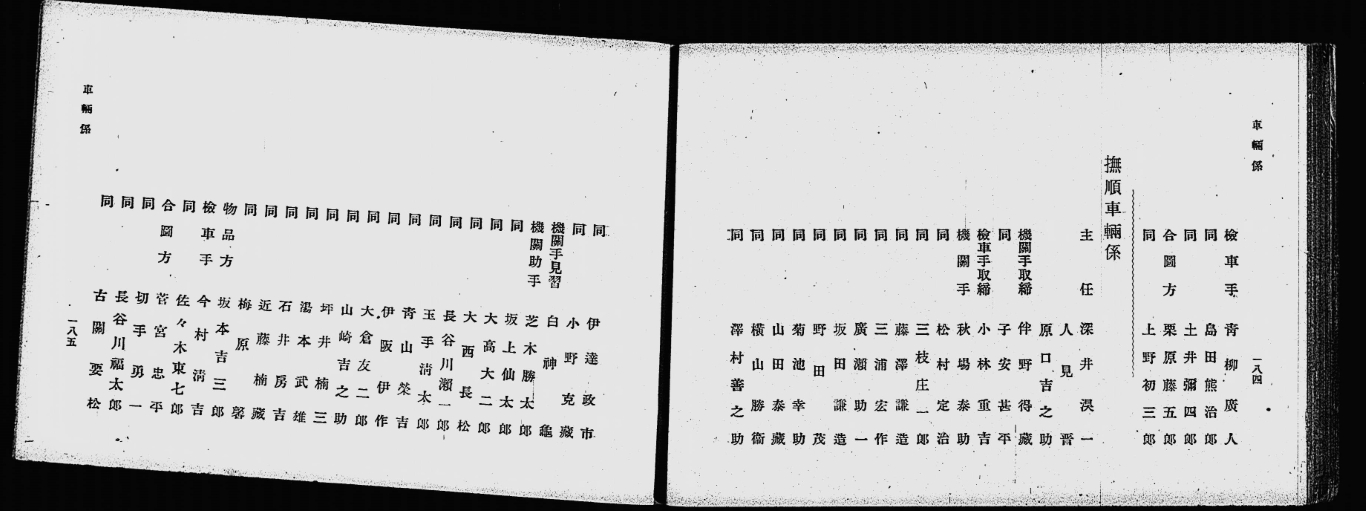 車輛係
一八四
檢車手 青柳廣人
同 島田熊治郎
同 土井彌四郎
合圖方 栗原藤五郎
同 上野初三郎
撫順車輛係
主任 深井淏一
人見晋
原口吉之助
機關手取締 伴野得藏
同 子安甚平
檢車手取締 小林重吉
機關手 秋場泰助
同 松村定治
同 三枝庄一郎
同 藤澤謙造
同 三浦宏作
同 廣瀬助一
同 坂田謙造
同 野田茂
同 菊池幸助
同 山田泰藏
同 横山勝衞
同 澤村善之助
同 伊達政市
同 小野克藏
機關手見習 白神龜
機關助手 芝木勝太郎
同 坂上仙太郎
同 大高大二郎
同 大西長松
同 長谷川瀬一郎
同 玉手淸太郎
同 青山榮吉
同 伊阪伊作
同 大倉友二郎
同 山崎吉之助
同 坪井楠三
同 湯本武雄
同 石井房吉
同 近藤楠藏
同 梅原馨
物品方 坂本吉三郎
檢車手 今村淸吉
同 佐々木東七郎
合圖方 菅宮忠平
同 切手勇一
同 長谷川福太郎
同 古關要松
車輛係
一八五